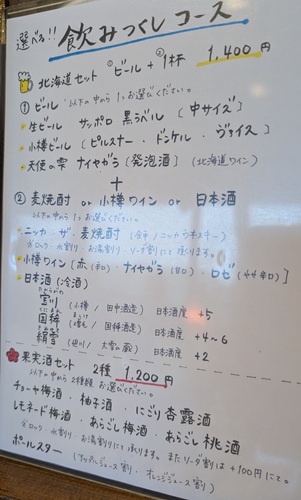 選べる!! 飲みつくしコース
🍺北海道セット ①ビール + ②1杯 1,400円
① ビール 以下の中から1つお選びください。
・生ビール サッポロ 黒ラベル (中サイズ)
・小樽ビール (ピルスナー・ドンケル・ヴァイス)
・天使の雫 ナイヤガラ (発泡酒) (北海道ワイン)
+
② 麦焼酎 or 小樽ワイン or 日本酒
以下の中から1つお選びください。
・ニッカ・ザ・麦焼酎 (余市/ニッカウヰスキー)
※ロック・水割り お湯割り・ソーダ割にて承ります。
・小樽ワイン [赤(辛口)・ナイヤガラ(甘口)・ロゼ(やや辛口)]
・日本酒 (冷酒)
宝川 (小樽 / 田中酒造) 日本酒度 +5
国稀 (増毛 / 国稀酒造) 日本酒度 +4~6
絹雪 (旭川 / 大雪の蔵) 日本酒度 +2
果実酒セット 2種 1,200円
以下の中から2種類お選びください。
チョーヤ梅酒・柚子酒・にごり杏露酒
レモネード梅酒・あらごし梅酒・あらごし桃酒
※ロック・水割り お湯割りにて承ります。またソーダ割は+100円にて。
ポールスター (アップルジュース割・オレンジジュース割)